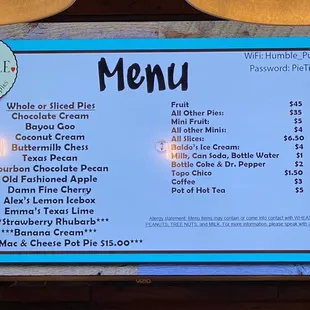 WiFi: Humble_
Menu
Password:
Whole or Sliced Pies
Chocolate Cream
Bayou Goo
Coconut Cream
Buttermilk Chess
Texas Pecan
Bourbon Chocolate Pecan
Old Fashioned Apple
Damn Fine Cherry
Alex's Lemon Icebox
Emma's Texas Lime
*Strawberry Rhubarb***
***Banana Cream***
Mac & Cheese Pot Pie $15.00***
Fruit $45
All Other Pies: $35
Mini Fruit: $5
All other Minis: $4
All Slices: $6.50
Baldo's Ice Cream: $4
Milk, Can Soda, Bottle Water $1
Bottle Coke & Dr. Pepper $2
Topo Chico $1.50
Coffee $3
Pot of Hot Tea $5
Allergy statement: Menu items may contain or come into contact with WHEAT
PEANUTS, TREE NUTS, and MILK. For more information, please speak with